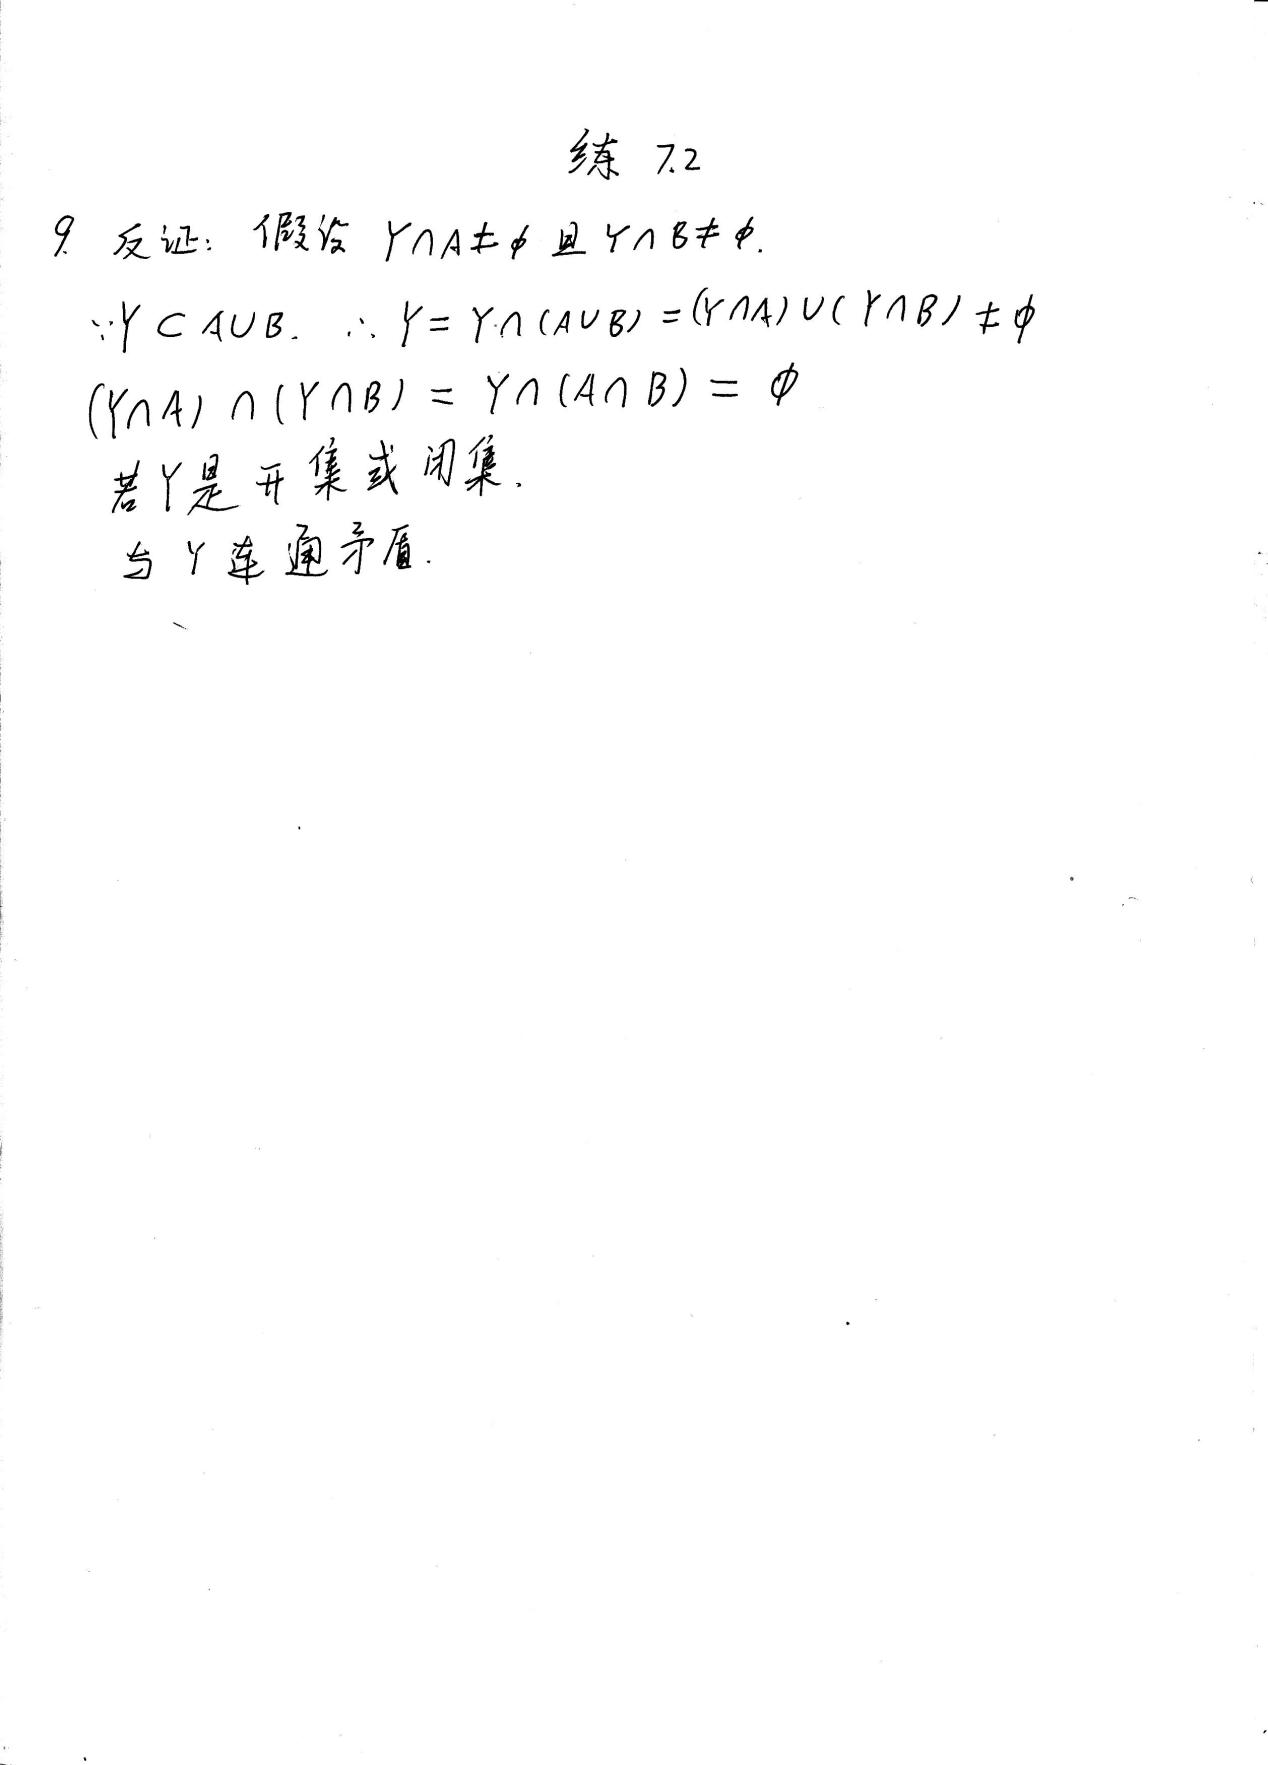 练 7.2
9. 反证: 假设 Y∩A≠φ 且 Y∩B≠φ.
∵Y⊂A∪B. ∴ Y=Y∩(A∪B)=(Y∩A)∪(Y∩B)≠φ
(Y∩A)∩(Y∩B)=Y∩(A∩B)=φ
若Y是开集或闭集.
与Y连通矛盾.